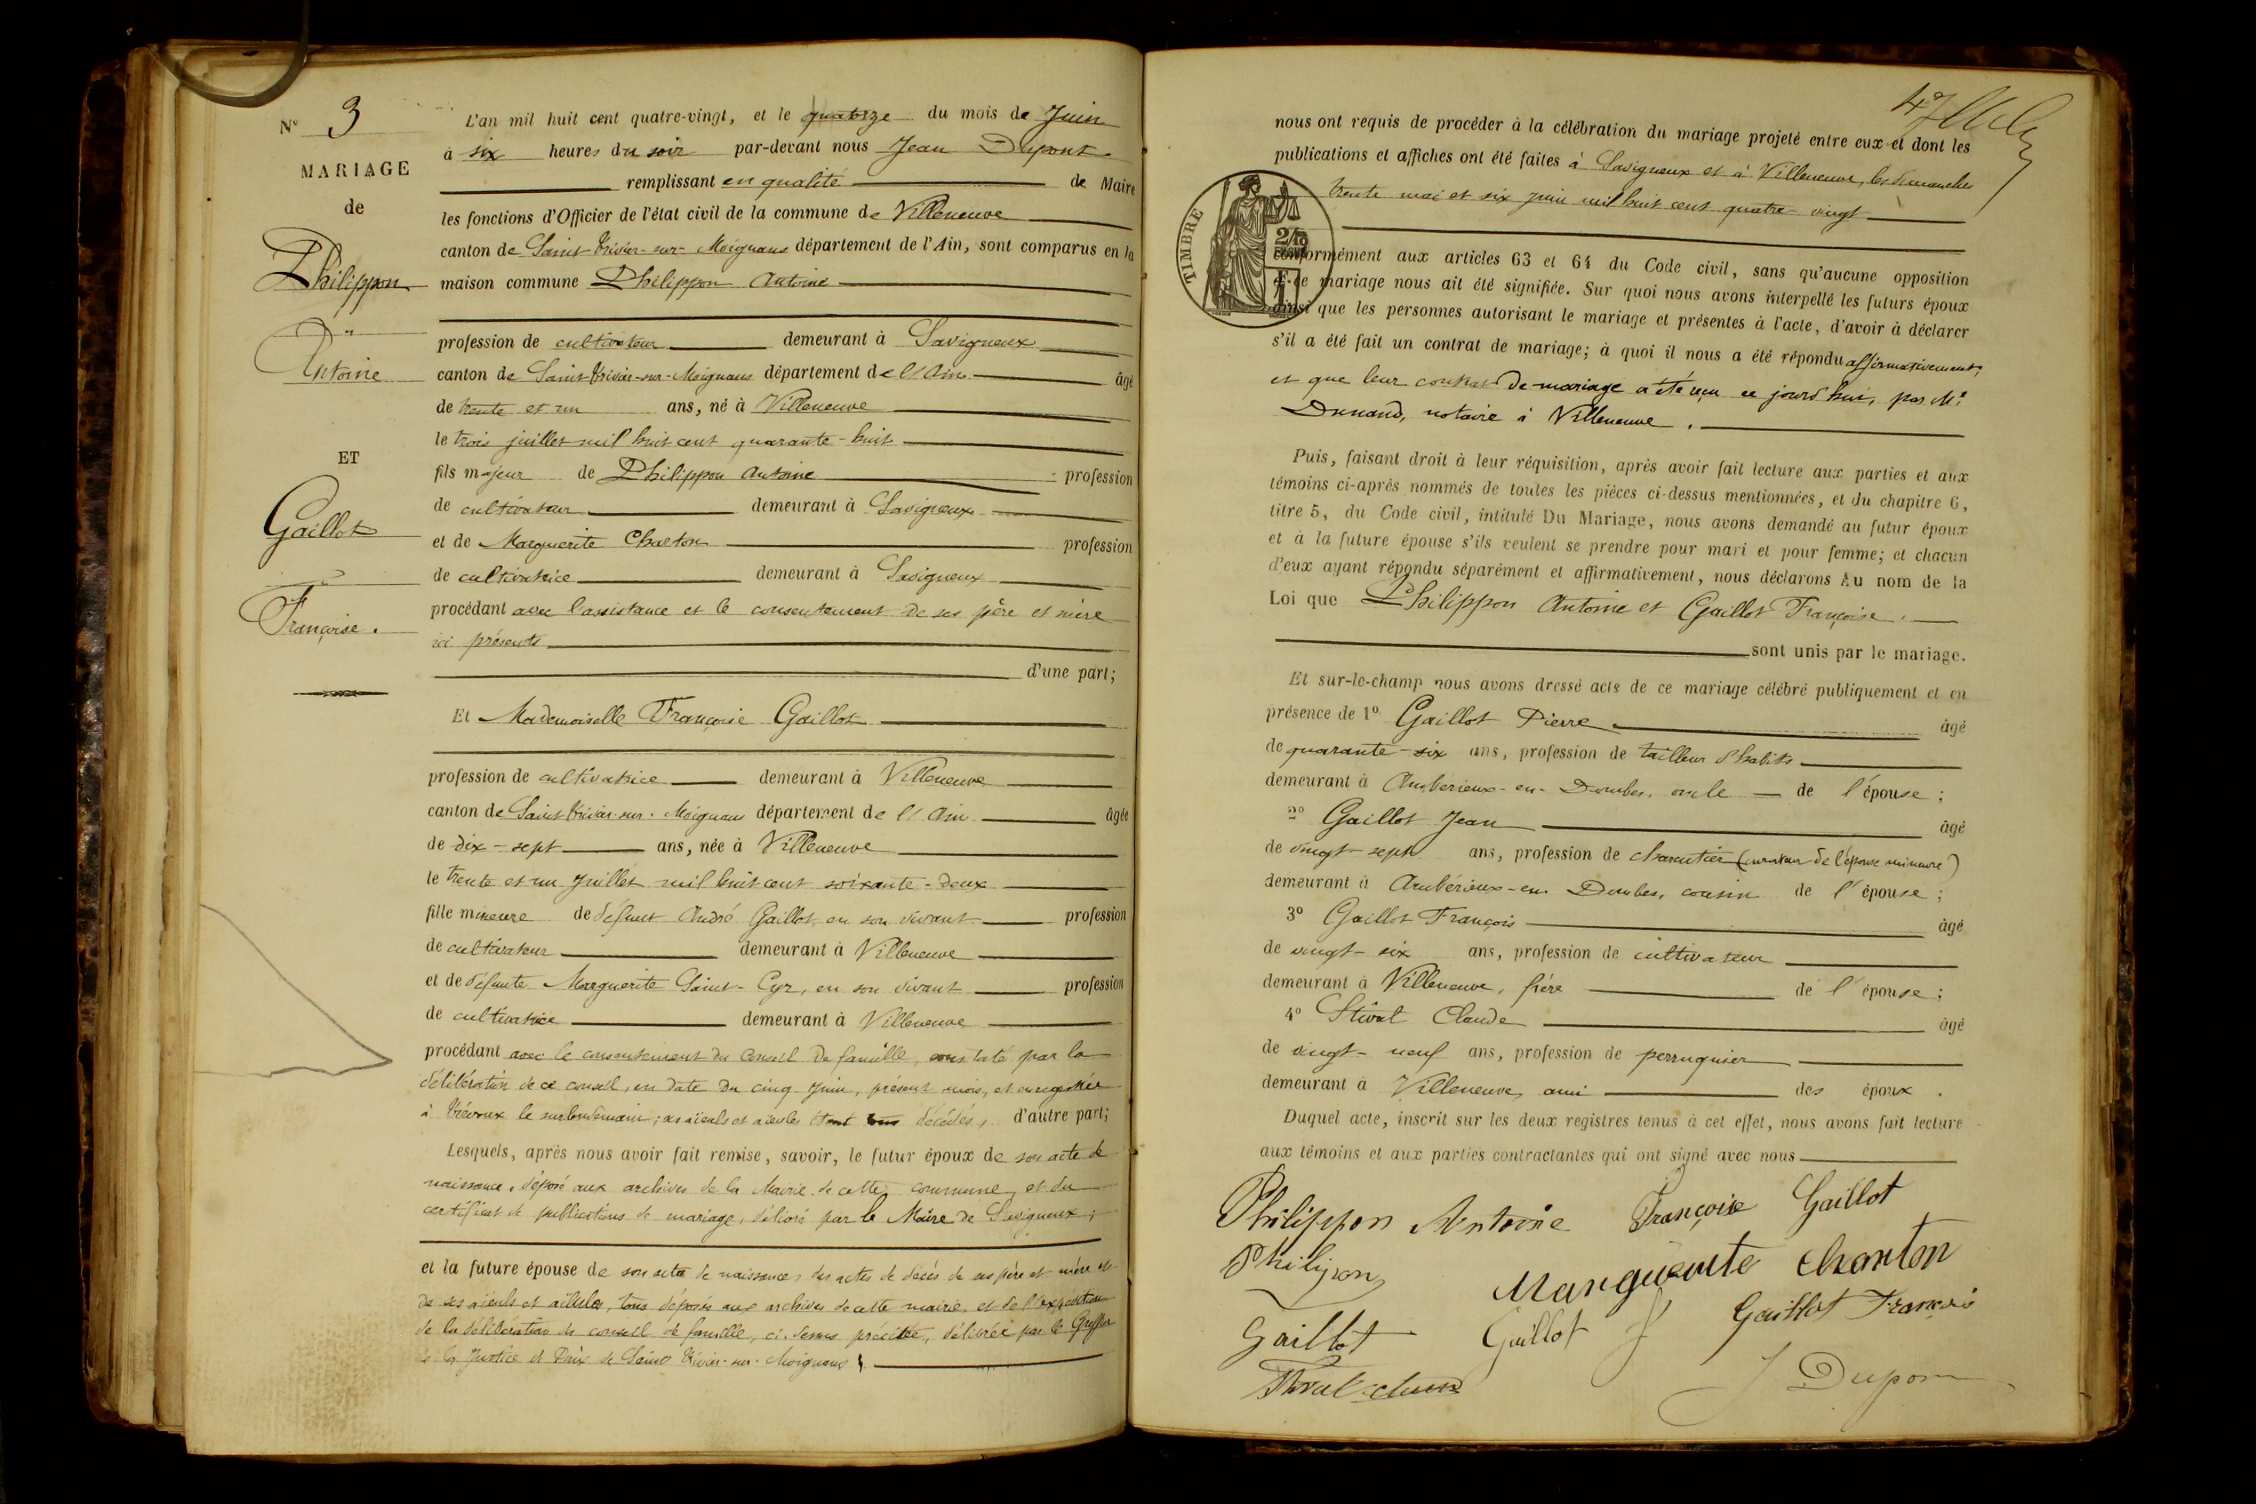 Nº 3
MARIAGE
de
Philippon
"
Antoine
ET
Gaillot
Françoise.
L'an mil huit cent quatre-vingt, et le quatorze du mois de Juin
à six heures du soir par-devant nous Jean Dupont
remplissant en qualité de Maire
les fonctions d'Officier de l'état civil de la commune de Villeneuve
canton de Saint Trivier-sur-Moignans département de l'Ain, sont comparus en la
maison commune Philippon Antoine
profession de cultivateur demeurant à Savigneux
canton de Saint Trivier-sur-Moignans département de l'Ain âgé
de trente et un ans, né à Villeneuve
le trois juillet mil huit cent quarante-huit
fils majeur de Philippon Antoine profession
de cultivateur demeurant à Savigneux
et de Marguerite Charton profession
de cultivatrice demeurant à Savigneux
procédant avec l'assistance et le consentement de ses père et mère
ici présents
d'une part;
Et Mademoiselle Françoise Gaillot
profession de cultivatrice demeurant à Villeneuve
canton de Saint Trivier-sur-Moignans département de l'Ain âgée
de dix-sept ans, née à Villeneuve
le trente et un Juillet mil huit cent soixante-deux
fille mineure de défunt André Gaillot, en son vivant profession
de cultivateur demeurant à Villeneuve
et de défunte Marguerite Saint-Cyr, en son vivant profession
de cultivatrice demeurant à Villeneuve
procédant avec le consentement du Conseil de famille, constaté par la
délibération de ce conseil, en date du cinq Juin, présent mois, et enregistrée
à Trévoux le surlendemain; ses aïeuls et aïeules étant tous décédés, d'autre part;
Lesquels, après nous avoir fait remise, savoir, le futur époux de son acte de
naissance, déposé aux archives de la Mairie de cette commune, et du
certificat de publications de mariage, délivré par le Maire de Savigneux;
et la future épouse de son acte de naissance, des actes de décès de ses père et mère et
de ses aïeuls et aïeules, tous déposés aux archives de cette mairie, et de l'expédition
de la délibération du conseil de famille, ci-dessus précitée, délivrée par le Greffier
de la Justice de Paix de Saint Trivier-sur-Moignans;
47
nous ont requis de procéder à la célébration du mariage projeté entre eux et dont les
publications et affiches ont été faites à Savigneux et à Villeneuve, les dimanches
trente mai et six juin mil huit cent quatre-vingt
TIMBRE
conformément aux articles 63 et 64 du Code civil, sans qu'aucune opposition
à ce mariage nous ait été signifiée. Sur quoi nous avons interpellé les futurs époux
ainsi que les personnes autorisant le mariage et présentes à l'acte, d'avoir à déclarer
s'il a été fait un contrat de mariage; à quoi il nous a été répondu affirmativement,
et que leur contrat de mariage a été reçu ce jourd'hui, par Me
Dunand, notaire à Villeneuve.
Puis, faisant droit à leur réquisition, après avoir fait lecture aux parties et aux
témoins ci-après nommés de toutes les pièces ci-dessus mentionnées, et du chapitre 6,
titre 5, du Code civil, intitulé Du Mariage, nous avons demandé au futur époux
et à la future épouse s'ils veulent se prendre pour mari et pour femme; et chacun
d'eux ayant répondu séparément et affirmativement, nous déclarons Au nom de la
Loi que Philippon Antoine et Gaillot Françoise.
sont unis par le mariage.
Et sur-le-champ nous avons dressé acte de ce mariage célébré publiquement et en
présence de 1º Gaillot Pierre âgé
de quarante-six ans, profession de tailleur d'habits
demeurant à Ambérieux-en-Dombes, oncle de l'épouse;
2º Gaillot Jean âgé
de vingt-sept ans, profession de charcutier (curateur de l'épouse mineure)
demeurant à Ambérieux-en-Dombes, cousin de l'épouse;
3º Gaillot François âgé
de vingt-six ans, profession de cultivateur
demeurant à Villeneuve, frère de l'épouse;
4º Claude âgé
de vingt-neuf ans, profession de perruquier
demeurant à Villeneuve, ami des époux.
Duquel acte, inscrit sur les deux registres tenus à cet effet, nous avons fait lecture
aux témoins et aux parties contractantes qui ont signé avec nous
Philippon Antoine Françoise Gaillot
Philipon Marguerite Charton
Gaillot Gaillot J Gaillot François
J Dupont